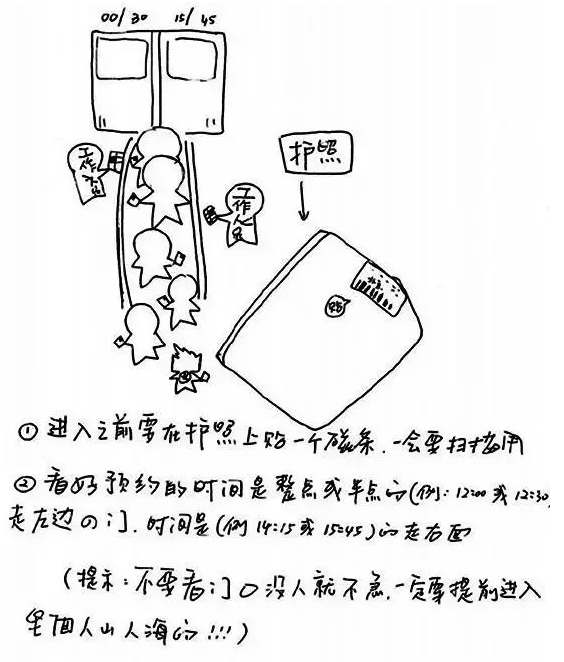 00/30 15/45
工作人员
护照
工作人员
贴
① 进入之前需在护照上贴一个磁条，一会要扫描用
② 看好预约的时间是整点或半点的(例：12:00 或 12:30,
走左边の门，时间是(例 14:15 或 15:45)の走右面
(提示：不要看门口没人就不急，一定要提前进入
里面人山人海的!!!)